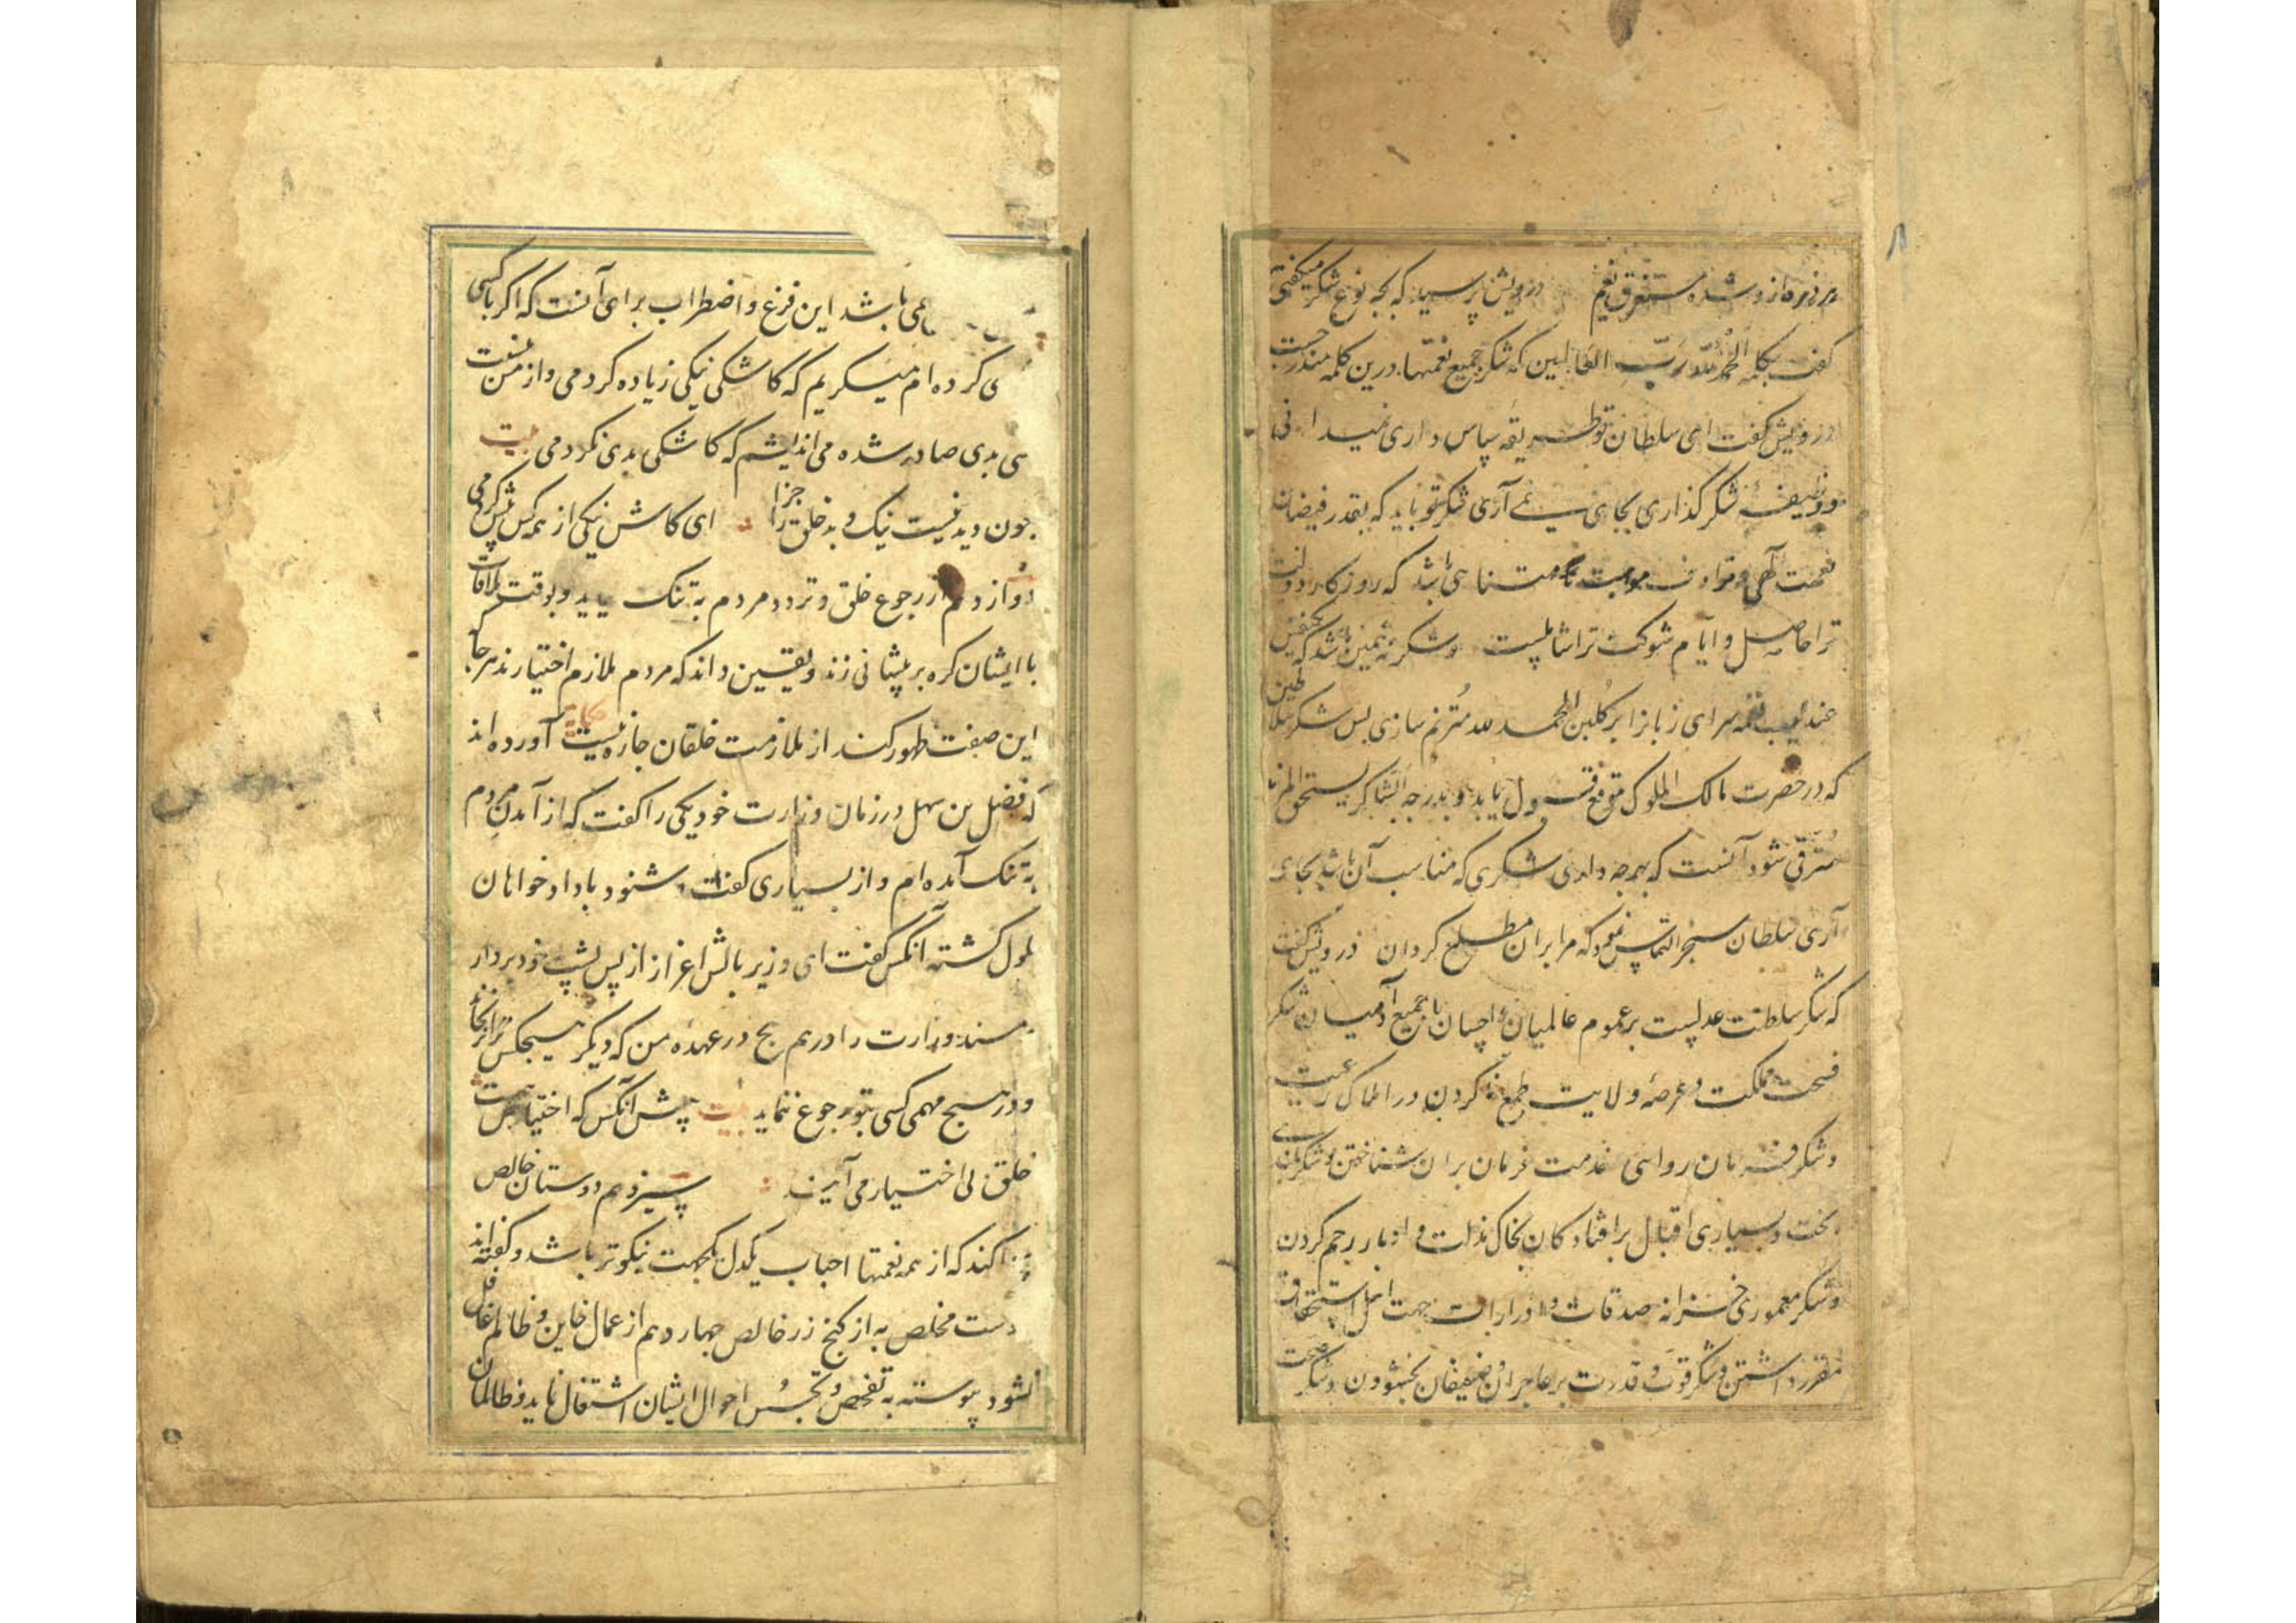 درویش پرسید که بچه نوع شکر میگفتی
گفت بکلمه الحمد لله رب العالمین که شکر جمیع نعمتها درین کلمه مندرجست
درویش گفت ای سلطان تو طریقه سپاس داری نمیدانی
و وظیفه شکر گذاری بجای نمی آری شکر تو باید که بقدر فیضان
نعمت الهی و ترادف موهبت نامتناهی باشد که روزکار دولت
ترا حاصل و ایام شوکت ترا شاملست و شکر نه همین باشد که
عندلیب نغمه سرای زبانرا بر کلبن الحمد لله مترنم سازی بس شکر سلاطین
که در حضرت مالک الملوک موقع قبول یابد و بدرجه الشاکر یستحق المزید
مترقی شود آنست که بهرچه داری شکری که مناسب آن باشد بجای
آری سلطان سنجر التماس نمود که مرا بران مطلع کردان درویش کفت
که شکر سلطنت عدلست بر عموم عالمیان و احسان با جمیع آدمیان شکر
فسحت مملکت و عرصه ولایت طمع نکردن در املاک رعیت
و شکر فرمان روائی خدمت فرمان بران شناختن و شکر بلندی
بخت و بسیاری اقبال بر افتادکان بخاک مذلت و ادبار رحم کردن
و شکر معموری خزانه صدقات و ادرارات جهت اهل استحقاق
مقرر داشتن و شکر قوت و قدرت بر عاجزان و ضعیفان بخشودن و شکر صحت
می باشد این فزع و اضطراب برای آنست که اکر با کسی
کرده ام میکریم که کاشکی نیکی زیاده کردمی و از من نسبت
بدی صادر شده می اندیشم که کاشکی بدی نکردمی بیت
چون دیدنیست نیک و بد خلق را جزا ای کاش نیکی از همه کس بیش کردمی
دوازدهم از رجوع خلق و تردد مردم به تنک نیاید و بوقت ملاقات
با ایشان کره بر پیشانی نزند و یقین داند که مردم ملازم اختیارند هر جا
این صفت ظهور کند از ملازمت خلقان چاره نیست حکایت آورده اند
که فضل بن سهل در زمان وزارت خود یکی را کفت که از آمدن مردم
به تنک آمده ام و از بسیاری کفت و شنود با دادخواهان
ملول کشته آنکس کفت ای وزیر بالش اعزاز از پس پشت خود بردار
و مسند وزارت را درهم پیچ در عهده من که دیکر هیچکس
و در هیچ مهمی کسی بتو رجوع ننماید بیت پیش آنکس که اختیارش هست
خلق بی اختیار می آیند سیزدهم دوستان خالص
کند که از همه نعمتها احباب یکدل یکجهت نیکوتر باشد و کفته اند
دوست مخلص به از کنج زر خالص چهاردهم از عمال خاین و ظالم غافل
نشود پیوسته به تفحص و تجسس احوال ایشان اشتغال نماید و ظالمان